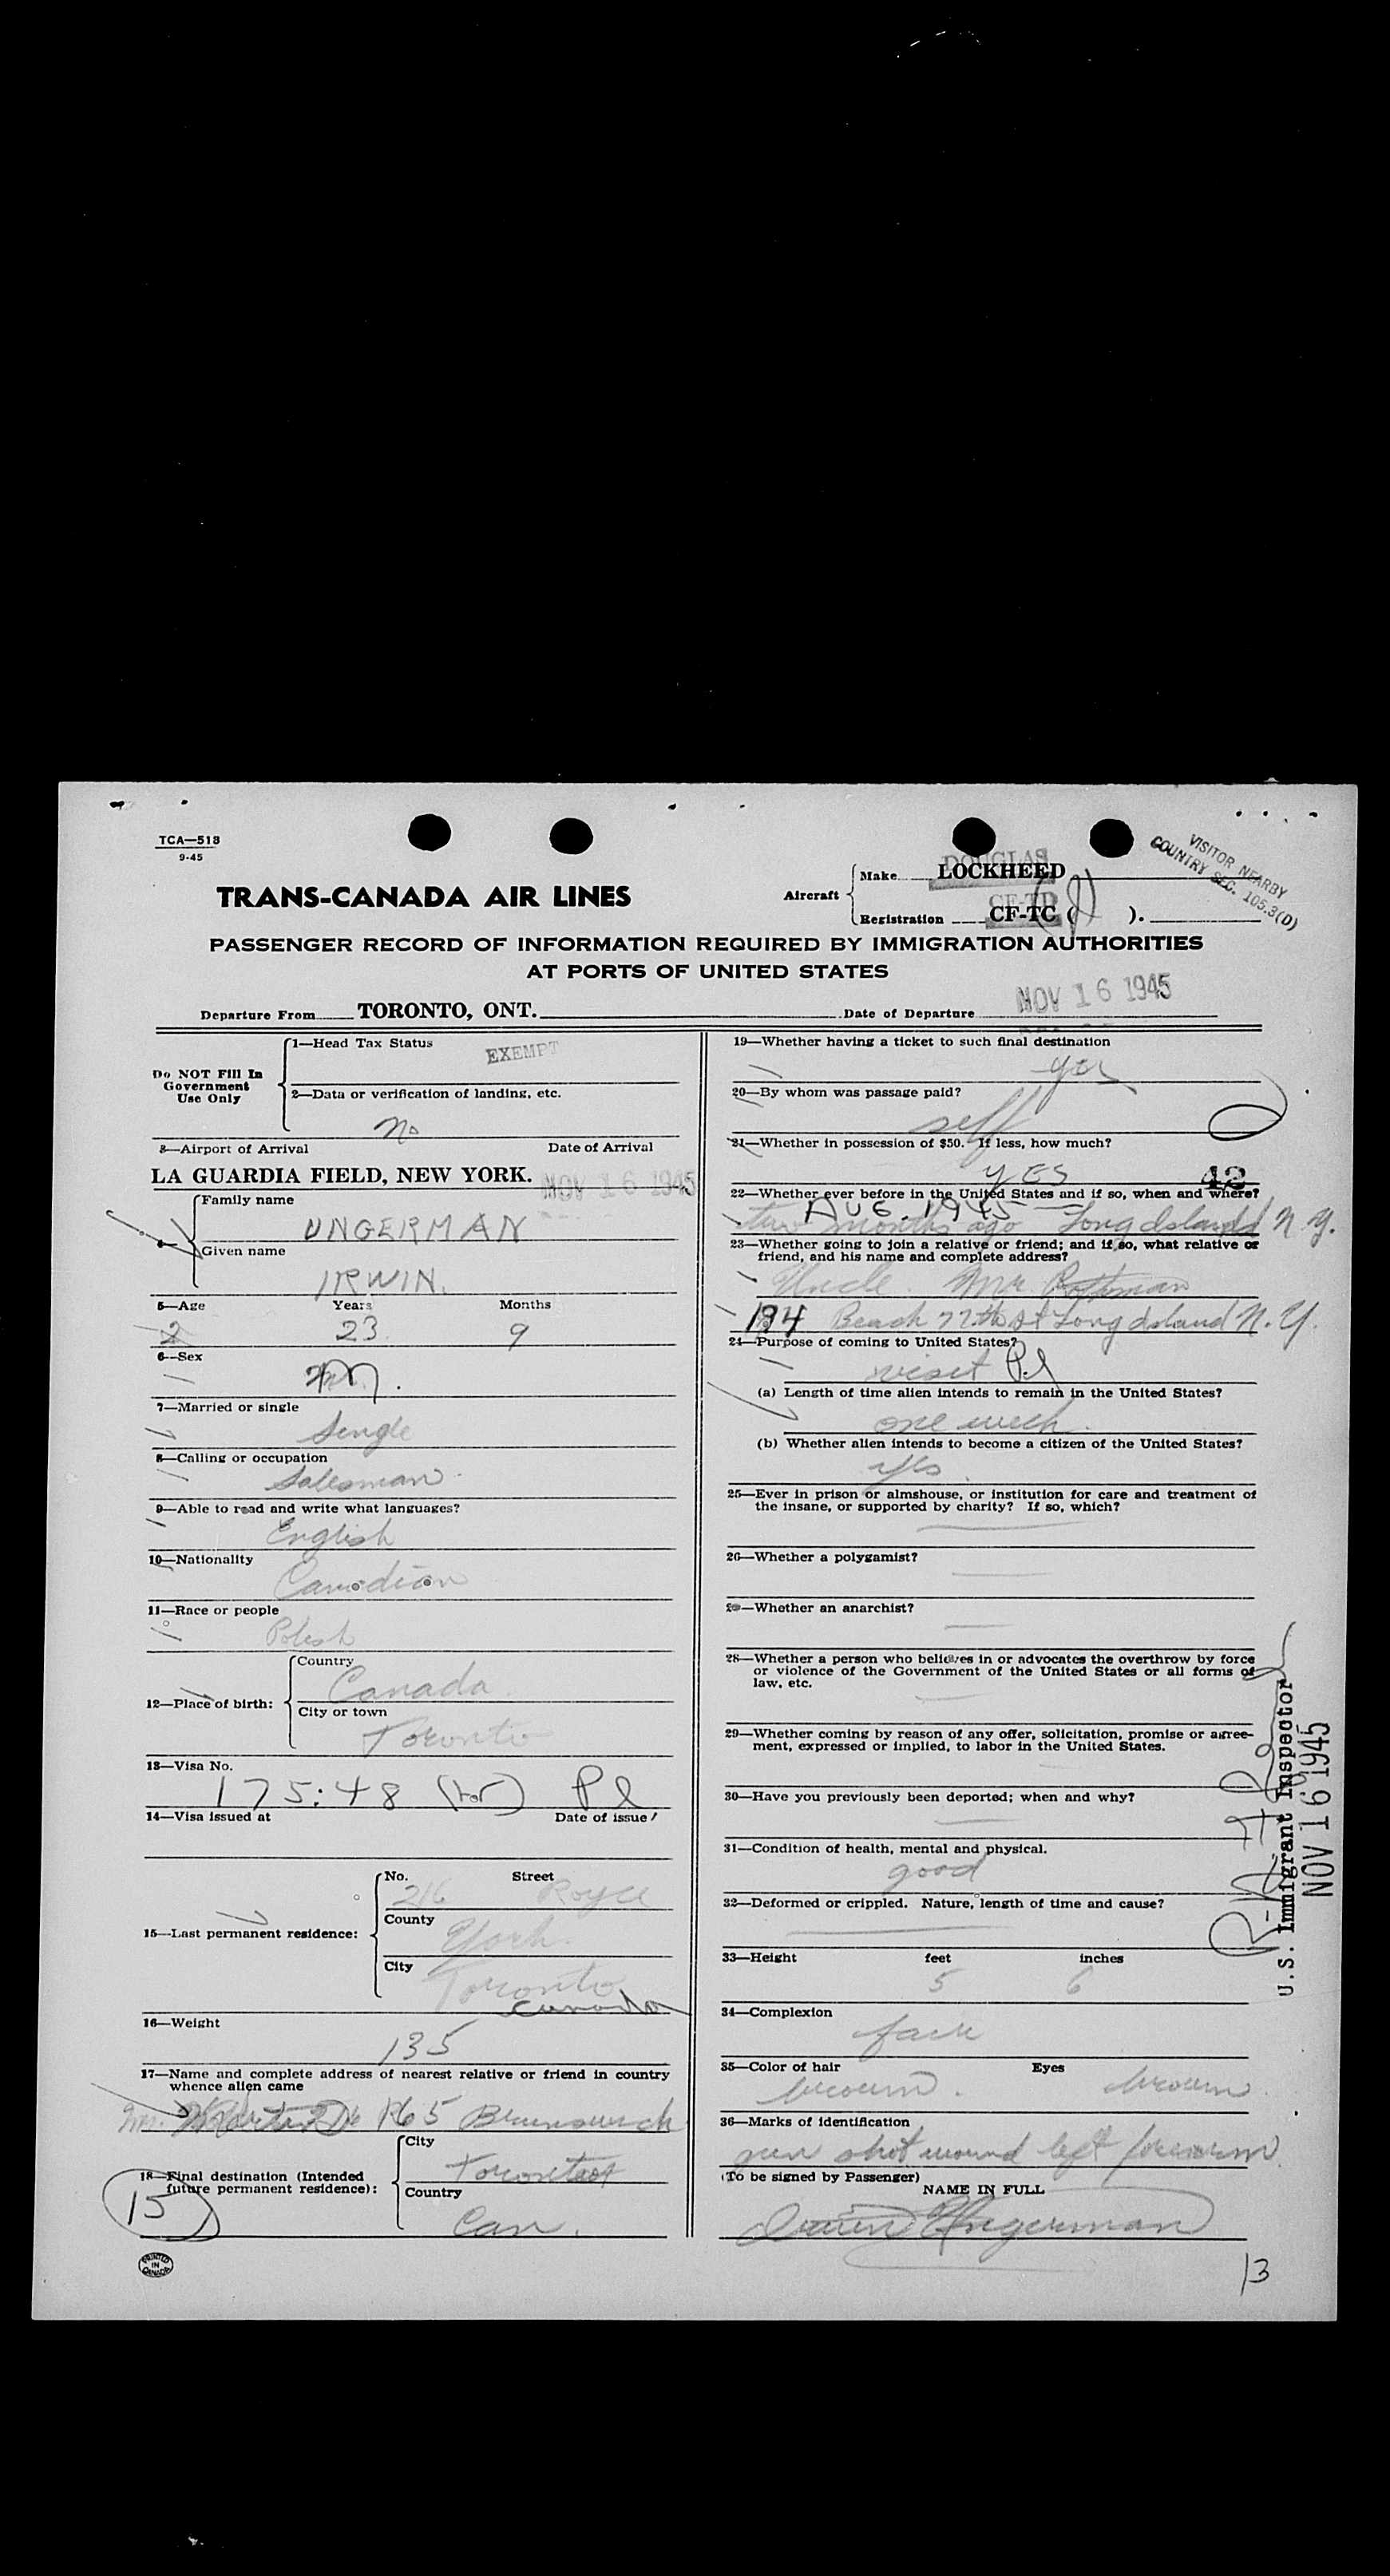 TCA—518
9-45
VISITOR NEARBY
COUNTRY SEC. 105.3(D)
TRANS-CANADA AIR LINES
Aircraft
DOUGLAS
Make LOCKHEED
CF-TD
Registration CF-TC ( ).
PASSENGER RECORD OF INFORMATION REQUIRED BY IMMIGRATION AUTHORITIES
AT PORTS OF UNITED STATES
Departure From TORONTO, ONT. Date of Departure NOV 16 1945
Do NOT Fill In
Government
Use Only
1—Head Tax Status EXEMPT
2—Data or verification of landing, etc.
no
3—Airport of Arrival Date of Arrival
LA GUARDIA FIELD, NEW YORK. NOV 16 1945
4—
Family name
UNGERMAN
Given name
IRWIN.
5—Age Years Months
2 23 9
6—Sex
M.
7—Married or single
Single
8—Calling or occupation
Salesman
9—Able to read and write what languages?
English
10—Nationality
Canadian
11—Race or people
Polish
12—Place of birth:
Country
Canada
City or town
Toronto
13—Visa No.
175:48 (tor) Pl
14—Visa issued at Date of issue
15—Last permanent residence:
No. Street
216 Royce
County
York
City
Toronto
Canada
16—Weight
135
17—Name and complete address of nearest relative or friend in country
whence alien came
165 Brunswick
18—Final destination (Intended
future permanent residence):
15
City
Toronto
Country
Can.
PRINTED
IN
CANADA
19—Whether having a ticket to such final destination
yes
20—By whom was passage paid?
self
21—Whether in possession of $50. If less, how much?
YES 42
22—Whether ever before in the United States and if so, when and where?
AUG. 1945
two months ago Long Island N.Y.
23—Whether going to join a relative or friend; and if so, what relative or
friend, and his name and complete address?
Uncle Mr Rothman
194 Beach 77th St Long Island N.Y.
24—Purpose of coming to United States?
visit Pl
(a) Length of time alien intends to remain in the United States?
one week.
(b) Whether alien intends to become a citizen of the United States?
yes
25—Ever in prison or almshouse, or institution for care and treatment of
the insane, or supported by charity? If so, which?
26—Whether a polygamist?
—Whether an anarchist?
28—Whether a person who believes in or advocates the overthrow by force
or violence of the Government of the United States or all forms of
law, etc.
29—Whether coming by reason of any offer, solicitation, promise or agree-
ment, expressed or implied, to labor in the United States.
30—Have you previously been deported; when and why?
31—Condition of health, mental and physical.
good
32—Deformed or crippled. Nature, length of time and cause?
33—Height feet inches
5 6
34—Complexion
fair
35—Color of hair Eyes
brown. brown
36—Marks of identification
gun shot wound left forearm.
(To be signed by Passenger)
NAME IN FULL
Irwin Ungerman
13
U.S. Immigrant Inspector
NOV 16 1945